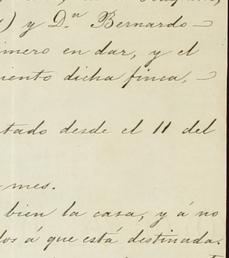 ) y D.ⁿ Bernardo
mero en dar, y el
iento dicha finca.
tado desde el 11 del
mes.
bien la casa, y á no
los á que está destinada.